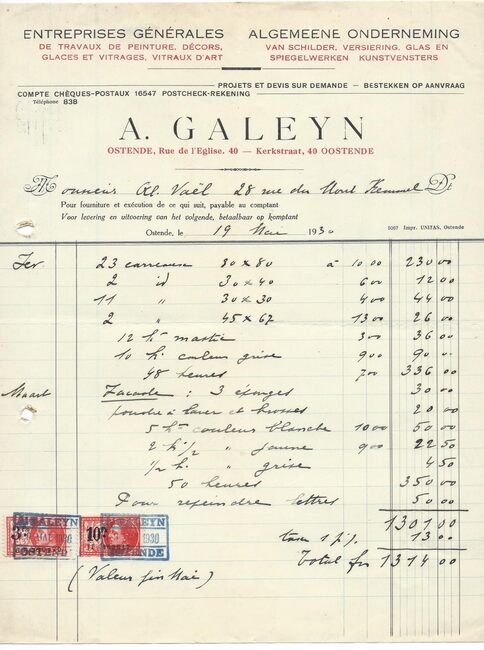 ENTREPRISES GÉNÉRALES ALGEMEENE ONDERNEMING
DE TRAVAUX DE PEINTURE, DÉCORS, VAN SCHILDER, VERSIERING, GLAS EN
GLACES ET VITRAGES, VITRAUX D'ART SPIEGELWERKEN KUNSTVENSTERS
PROJETS ET DEVIS SUR DEMANDE — BESTEKKEN OP AANVRAAG
COMPTE CHÈQUES-POSTAUX 16547 POSTCHECK-REKENING
Téléphone 838
A. GALEYN
OSTENDE, Rue de l'Eglise, 40 — Kerkstraat, 40 OOSTENDE
Monsieur Al. Vaël 28 rue du Mont Kemmel Dt
Pour fourniture et exécution de ce qui suit, payable au comptant
Voor levering en uitvoering van het volgende, betaalbaar op komptant
Ostende, le 19 Mai 1930 1057 Impr. UNITAS, Ostende
Fer 23 carreaux 80 x 80 à 10 00 230 00
2 id 30 x 40 6 00 12 00
11 " 30 x 30 4 00 44 00
2 " 45 x 67 13 00 26 00
12 k° mastic 3 00 36 00
10 k° couleur grise 9 00 90 -
48 heures 7 00 336 00
Maart Facade : 3 éponges 30 00
poudre à laver et brosses 20 00
5 k° couleur blanche 10 00 50 00
2 k° 1/2 " jaune 9 00 22 50
1/2 k. " grise 4 50
50 heures 350 00
Pour repeindre lettres 50 00
1301 00
taxe 1 % 13 00
Total frs 1314 00
(Valeur fin Mai)
3 10
A. GALEYN GALEYN
MAI 1930 1930
OOSTENDE OSTENDE